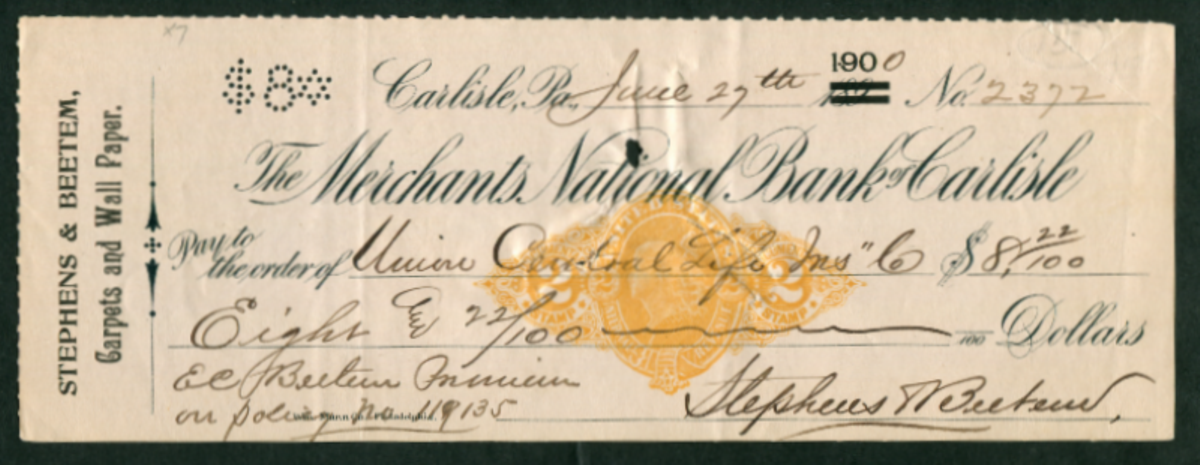 STEPHENS & BEETEM,
Carpets and Wall Paper.
$8
Carlisle, Pa. June 27th 1900 No. 2372
The Merchants National Bank of Carlisle
Pay to
the order of Union Central Life Ins" Co $ 8, 22/100
Eight & 22/100 100 Dollars
2 STAMP 2 STAMP
EC Beetem Premium
on policy no 119135
Stephens & Beetem,